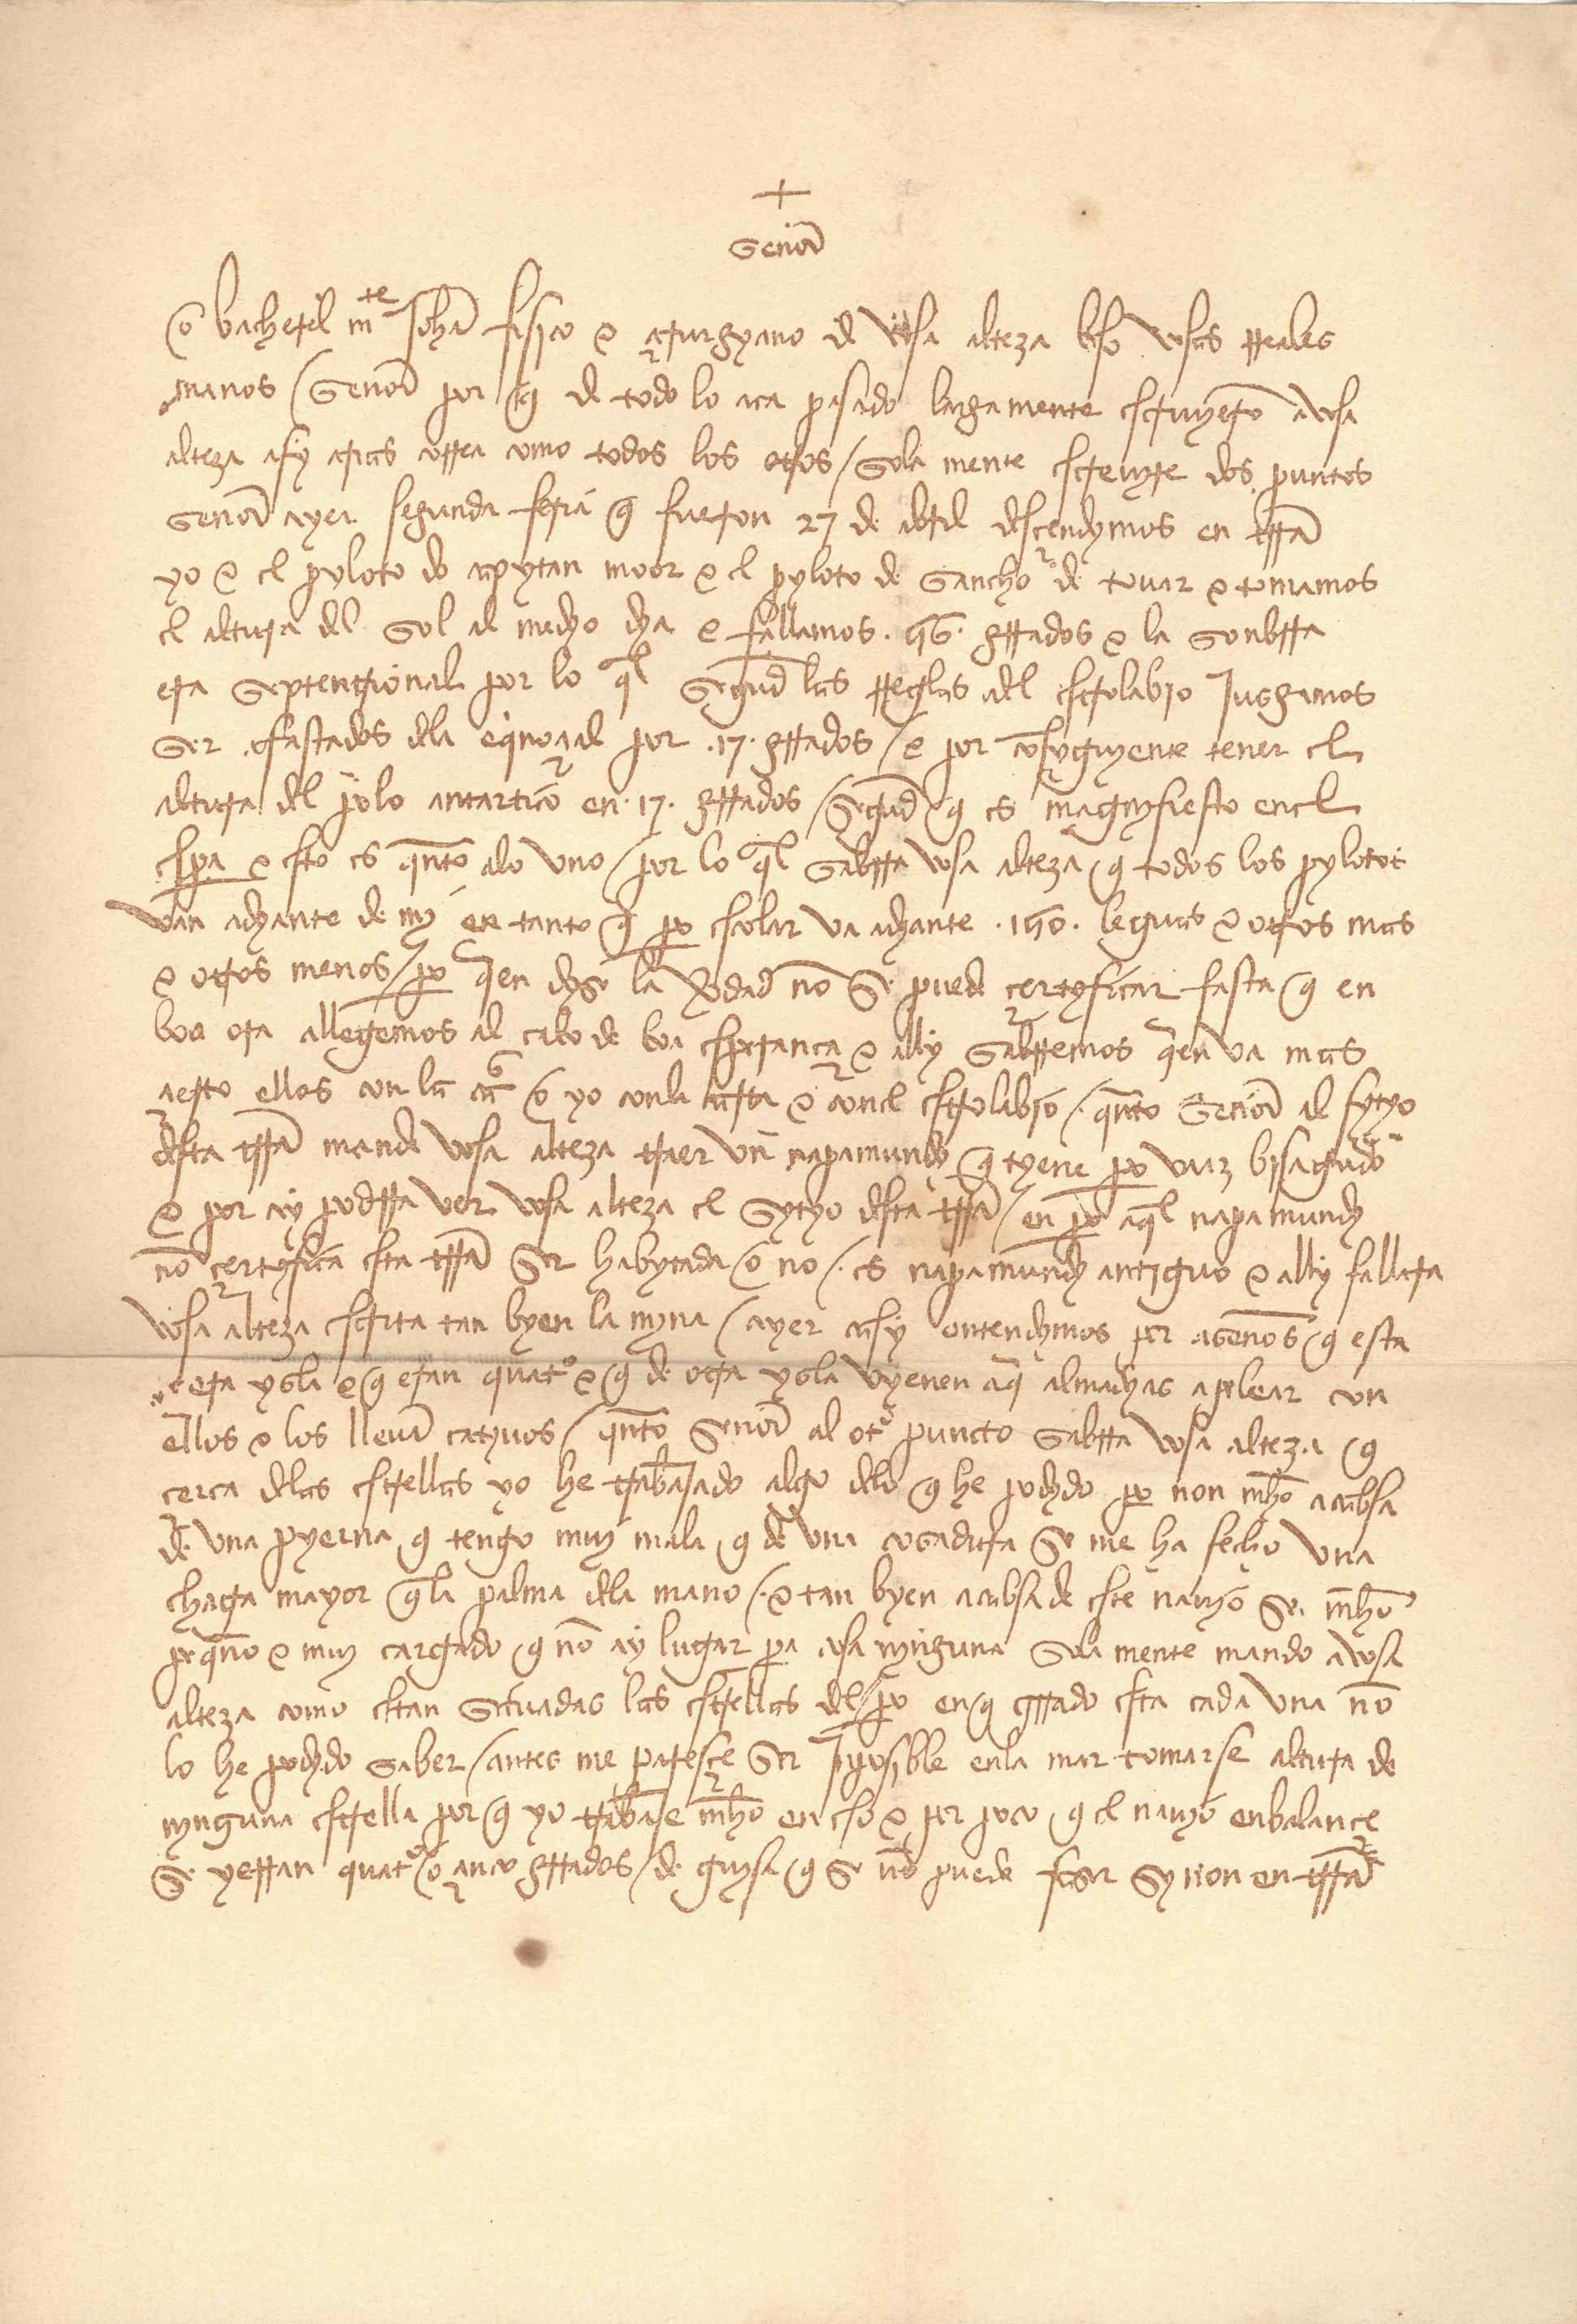 +
Señor
o bacherel mte Johã fisyco & çirurgyano de vosa alteza beso vosas rreales
manos / Señor por q de todo lo aca pasado largamente escriuyerõ a vosa
alteza asy arias correa como todos los otros / sola mente escreuyre dos puntos
Señor ayer segunda feria q fueron 27 de abril desçendymos en trra
yo & el pyloto do capytan moor & el pyloto de Sancho de touar & tomamos
el altura del sol al medyo dya e fallamos .56. grrados & la sonbrra
era septentrional por lo ql segũd las rreglas del estrolabio Jusgamos
ser afastados dela equinoçial por .17. grrados / e por cõsyguyente tener el
altura del polo antartico en .17. grrados / segũd q es magnyfiesto en el
espera & esto es qnto alo uno / por lo ql sabrra vosa alteza q todos los pylotos
van adyante de my en tanto q po escolar va adyante .150. leguas & otros mas
& otros menos / po qien dyse la verdad nõ se puede çertyficar fasta q en
boa ora allegemos al cabo de boa esperança & ally sabrremos qien va mas
çierto ellos con la carta o yo con la carta & con el estrolabio / qnto Señor al sytyo
desta trra mande vosa alteza traer un napamundy q tyene po vaaz bisagudo
& por ay podrra ver vosa alteza el sytyo desta trra / en po aql napamundy
nõ çertyfica esta trra ser habytada o no / es napamundy antiguo & ally fallara
vosa alteza escrita tan byen la myna / ayer casy entendymos per aseños q esta
era ysla e q eran quatro & q de otra ysla vyenen aq almadyas a pelear con
ellos & los lleuã catyuos / qnto Señor al otro puncto sabrra vosa alteza q
çerca delas estrellas yo he trabajado algo delo q he podydo po non mho a cabsa
de una pyerna q tengo muy mala q de una cosadura se me ha fecho una
chaga mayor q la palma dela mano / & tan byen a cabsa de este navyo ser mho
pequeno & muy cargado q nõ ay lugar pa cosa nynguna sola mente mando a vosa
alteza como estan situadas las estrellas del / po en q grrado esta cada una nõ
lo he podydo saber / antes me paresçe ser Jnposible en la mar tomarse altura de
nynguna estrella por q yo trabaje mho en eso & por poco q el navyo enbalançe
se yerran quatro o çinco grrados / de guysa q se nõ puede faser synon en trra